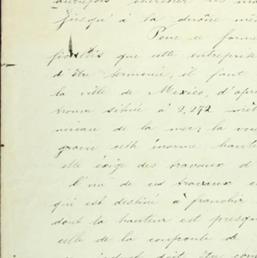 jusqu'à la dernière
Pour se former
que cette entreprise
d'être terminée, il faut
la ville de Mexico, d'apr
trouve située à 2,272 mèt
niveau de la mer; la vo
gravir cette énorme haute
elle exige des travaux d
L'un de ces travaux e
qui est destiné à franchir
dont la hauteur est presque
celle de la coupole de
doit être cons